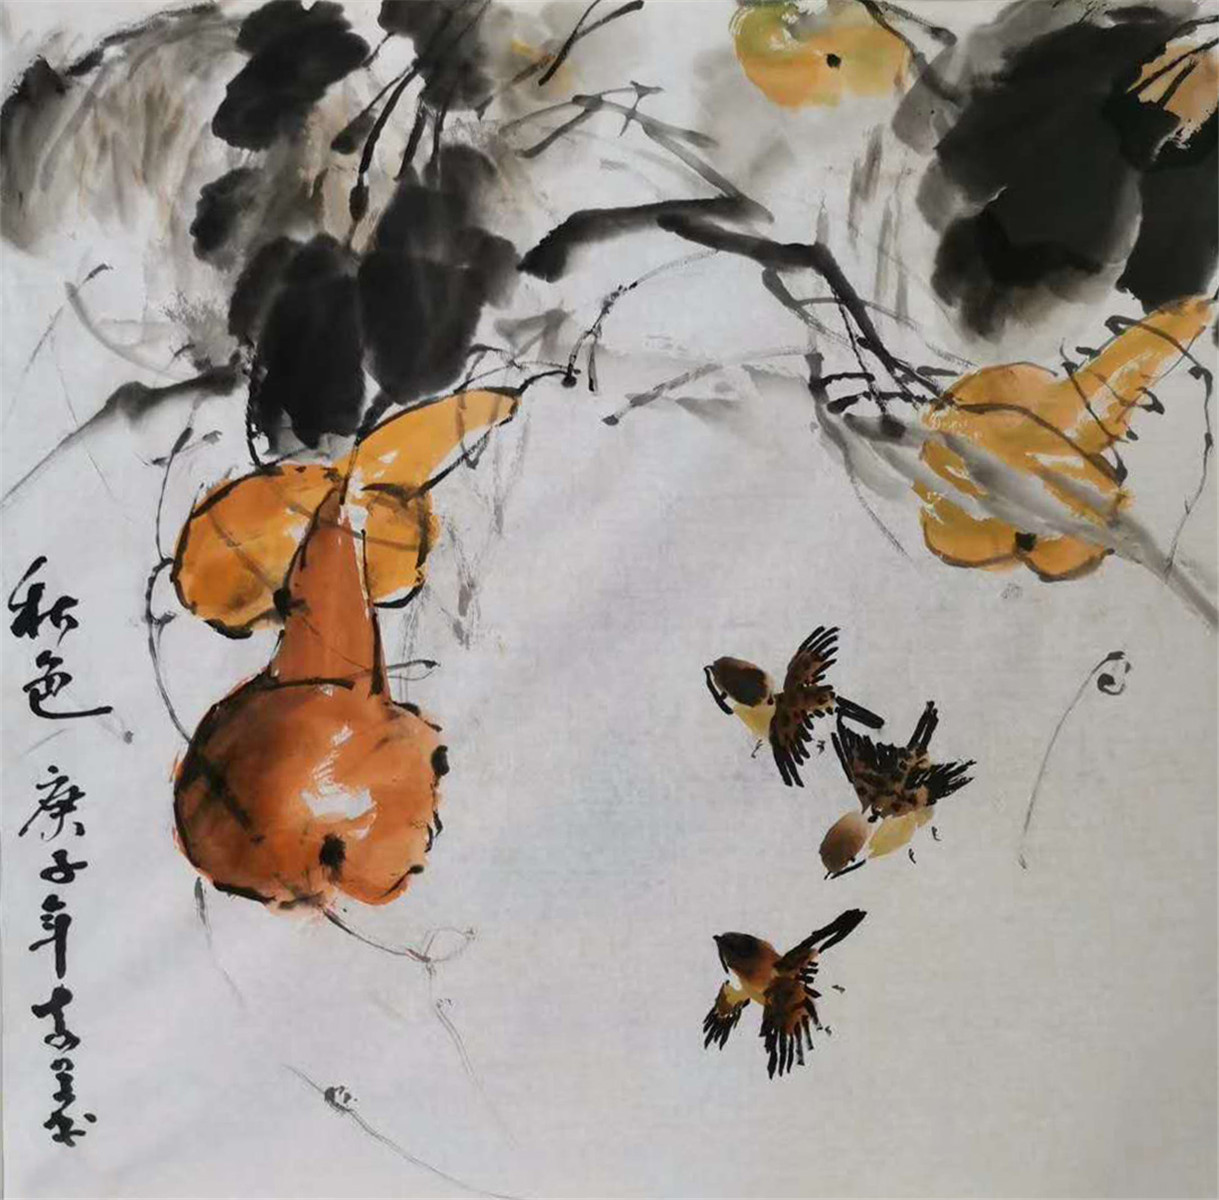 秋色
庚子年